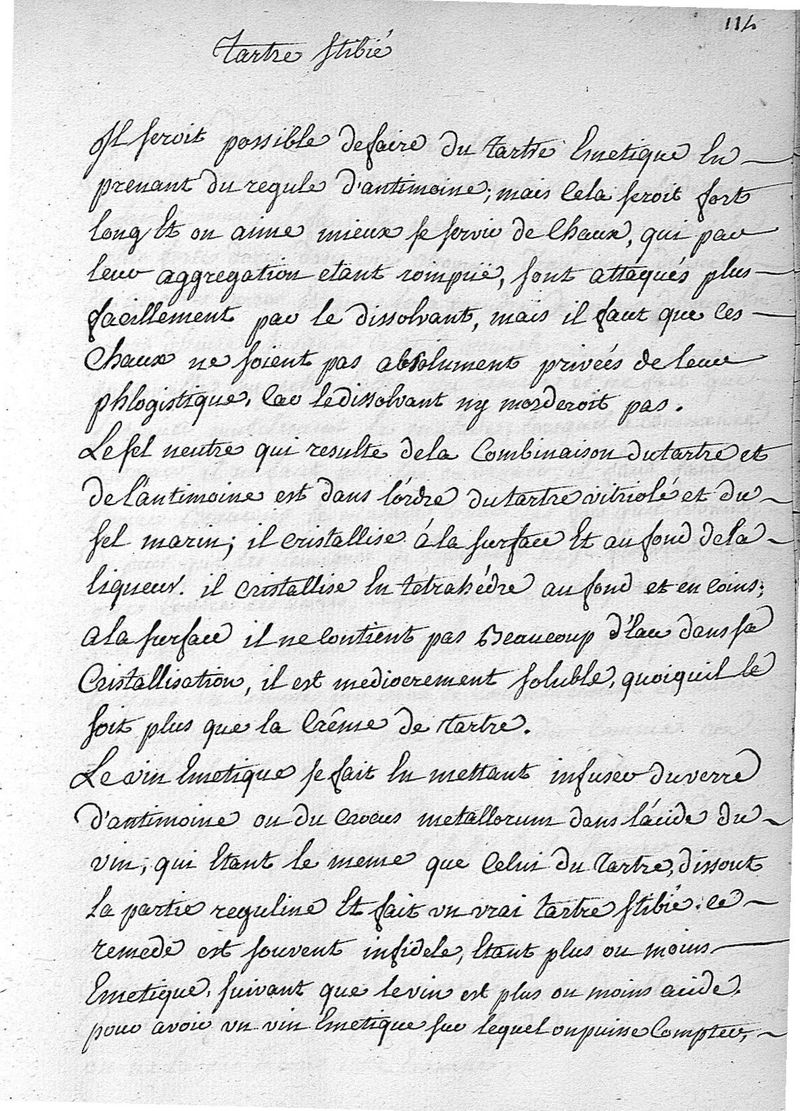 114
Tartre stibié
Il seroit possible defaire du tartre Emetique En
prenant du regule d'antimoine; mais Cela seroit fort
long Et on aime mieux se servir de Chaux, qui par
leur aggregation etant rompuë, sont attaqués plus
facillement par le dissolvant, mais il faut que ces
Chaux ne soient pas absolument privées de leur
phlogistique, Car ledissolvant ny morderoit pas.
Le sel neutre qui resulte dela Combinaison dutartre et
de l'antimoine est dans l'ordre dutartre vitriolé et du
sel marin; il cristallise à la surface Et au fond dela
liqueur. il Cristallise En tetrahédre au fond et en coins;
a la surface il ne Contient pas Beaucoup d'Eau dans sa
Cristallisation, il est mediocrement soluble, quoiquil le
soit plus que la Crême de tartre.
Le vin Emetique se fait En mettant infuser du verre
d'antimoine ou du Crocus metallorum dans l'acide du
vin, qui Etant le meme que Celui du tartre, dissout
la partie reguline Et fait vn vrai tartre stibié. ce
remede est souvent infidele, Etant plus ou moins
Emetique, suivant que levin est plus ou moins acide.
pour avoir vn vin Emetique sur lequel on puisse Compter,